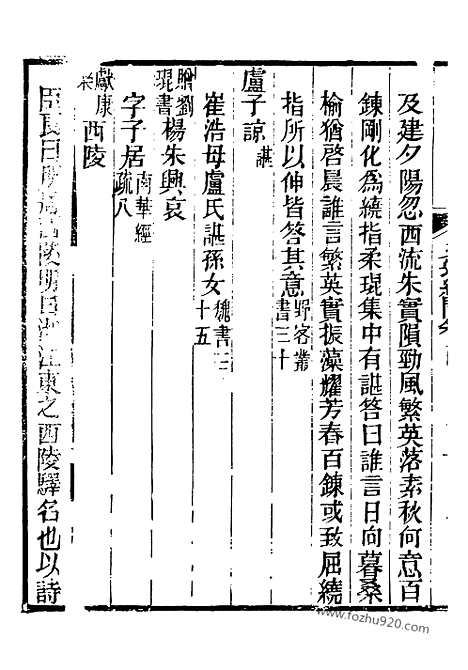 及建夕陽忽西流朱實隕勁風繁英落素秋何意百
鍊剛化為繞指柔琨集中有諶答曰誰言日向暮桑
榆猶啓晨誰言繁英實振藻耀芳春百鍊或致屈繞
指所以伸皆答其意野客叢書三十
盧子諒諶
崔浩母盧氏諶孫女魏書三十五
贈劉琨書楊朱興哀
字子居南華經疏八
獻康樂西陵
臣良曰西陵江東之西陵驛名也以詩
www.fozhu920.com